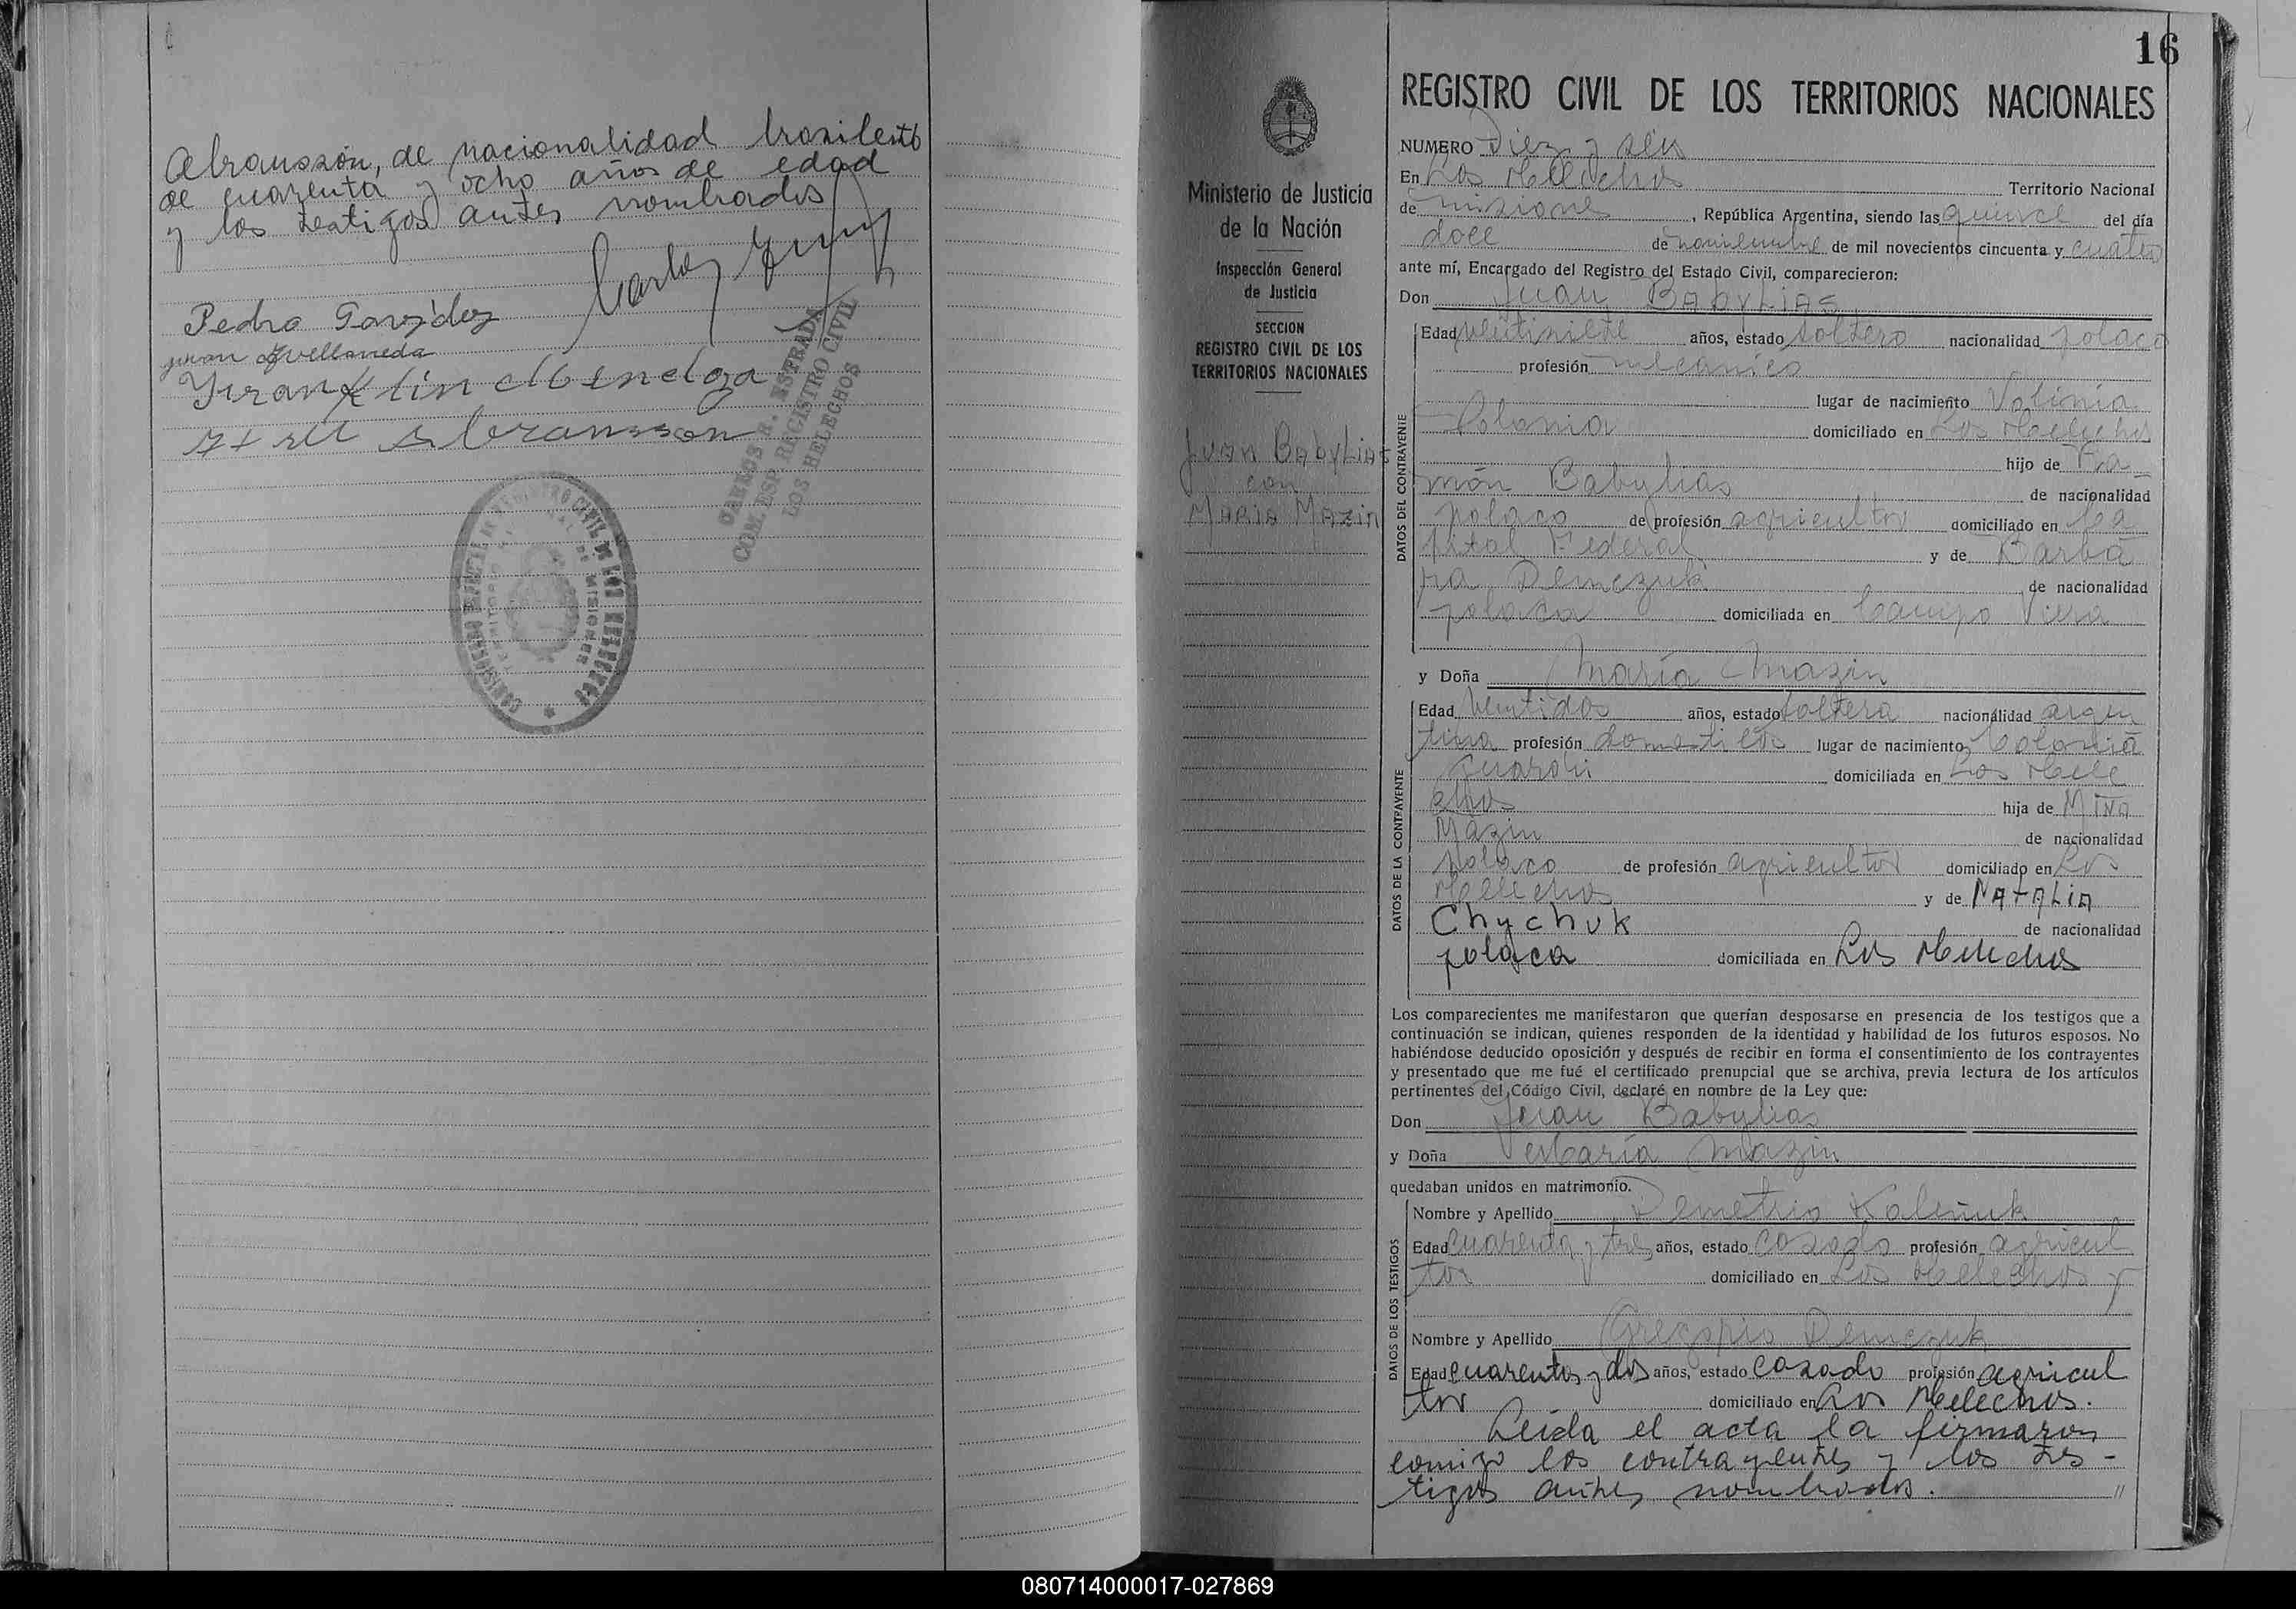 Abrausson, de nacionalidad brasileño
de cuarenta y ocho años de edad
y los testigos antes nombrados
Pedro
Juan Avellaneda
Franklin Mendoza
Abransson
CARLOS R. ESTRADA
COM. ESP. REGISTRO CIVIL
LOS HELECHOS
Ministerio de Justicia
de la Nación
Inspección General
de Justicia
SECCION
REGISTRO CIVIL DE LOS
TERRITORIOS NACIONALES
JUAN BABYLIAS
con
MARIA MAZIN
16
REGISTRO CIVIL DE LOS TERRITORIOS NACIONALES
NUMERO Diez y seis
En Los Helechos Territorio Nacional
de misiones, República Argentina, siendo las quince del día
doce de noviembre de mil novecientos cincuenta y cuatro
ante mí, Encargado del Registro del Estado Civil, comparecieron:
Don Juan BABYLIAS
DATOS DEL CONTRAYENTE
Edad veintisiete años, estado soltero nacionalidad polaco
profesión mecanico
lugar de nacimiento Volinia
Polonia domiciliado en Los Helechos
hijo de Ra
món Babylias de nacionalidad
polaco de profesión agricultor domiciliado en Ca
pital Federal y de Barba
ra Demczuk de nacionalidad
polaca domiciliada en Campo Viera
y Doña María Mazin
DATOS DE LA CONTRAYENTE
Edad veintidos años, estado soltera nacionalidad argen
tina profesión domesticos lugar de nacimiento Colonia
Guaraní domiciliada en Los Hele
chos hija de MINA
Mazin de nacionalidad
polaco de profesión agricultor domiciliado en Los
Helechos y de NATALIA
Chychuk de nacionalidad
polaca domiciliada en Los Helechos
Los comparecientes me manifestaron que querían desposarse en presencia de los testigos que a
continuación se indican, quienes responden de la identidad y habilidad de los futuros esposos. No
habiéndose deducido oposición y después de recibir en forma el consentimiento de los contrayentes
y presentado que me fué el certificado prenupcial que se archiva, previa lectura de los artículos
pertinentes del Código Civil, declaré en nombre de la Ley que:
Don Juan Babylias
y Doña María Mazin
quedaban unidos en matrimonio.
DATOS DE LOS TESTIGOS
Nombre y Apellido Demetrio Kaleñuk
Edad cuarenta y tres años, estado casado profesión agricul
tor domiciliado en Los Helechos y
Nombre y Apellido Gregorio Demczuk
Edad cuarenta y dos años, estado casado profesión agricul
tor domiciliado en Los Helechos.
Leída el acta la firmaron
comigo los contrayentes y los tes-
tigos antes nombrados. "
080714000017-027869